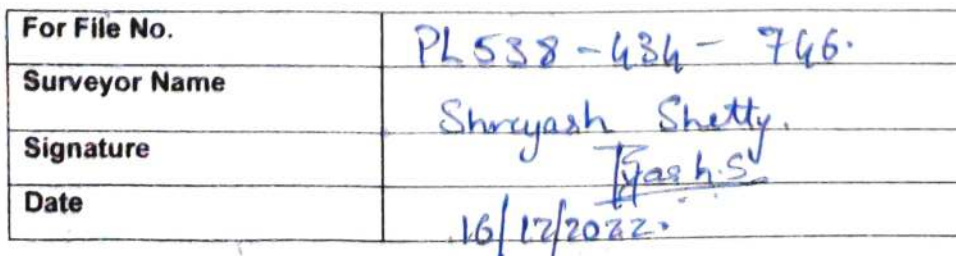 For File No. PL538-434-746.
Surveyor Name Shreyash Shetty.
Signature Yash.S
Date 16/12/2022.